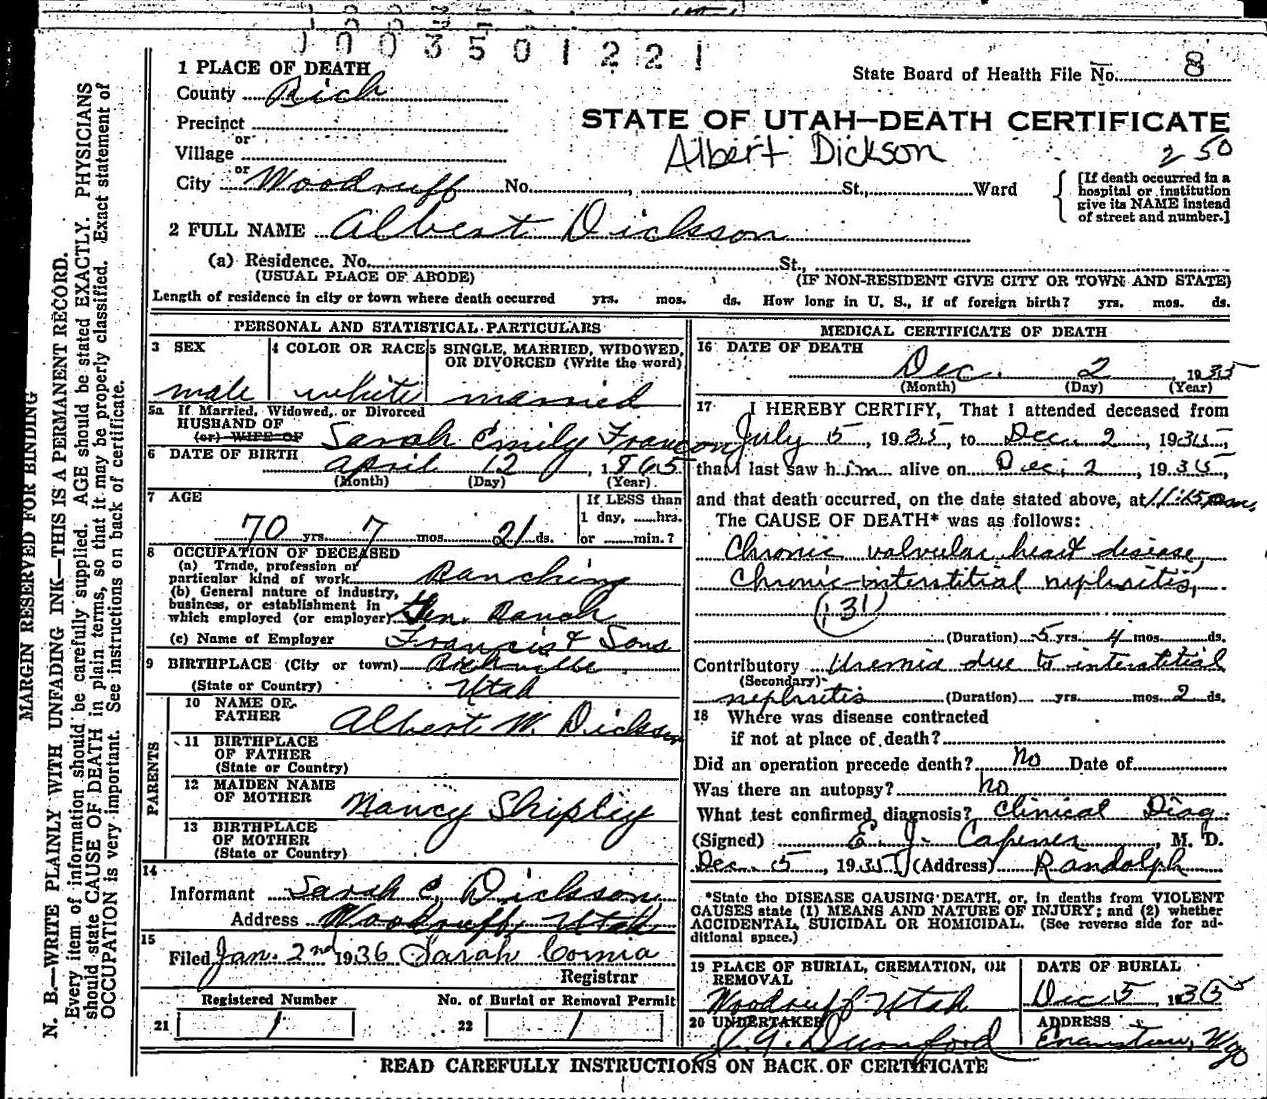 1003501221
1 PLACE OF DEATH
State Board of Health File No. 8
County Rich
STATE OF UTAH—DEATH CERTIFICATE
Precinct
or
Albert Dickson
2 50
Village
or
City Woodruff No. , St., Ward
[If death occurred in a hospital or institution give its NAME instead of street and number.]
2 FULL NAME Albert Dickson
(a) Residence. No. St.,
(USUAL PLACE OF ABODE) (IF NON-RESIDENT GIVE CITY OR TOWN AND STATE)
Length of residence in city or town where death occurred yrs. mos. ds. How long in U. S., if of foreign birth? yrs. mos. ds.
PERSONAL AND STATISTICAL PARTICULARS
3 SEX 4 COLOR OR RACE 5 SINGLE, MARRIED, WIDOWED, OR DIVORCED (Write the word)
male white married
5a If Married, Widowed, or Divorced
HUSBAND OF
(or) WIFE OF Sarah Emily Francom
6 DATE OF BIRTH April 12, 1865
(Month) (Day) (Year)
7 AGE If LESS than
70 yrs. 7 mos. 21 ds. 1 day, hrs.
or min.?
8 OCCUPATION OF DECEASED
(a) Trade, profession or
particular kind of work Ranching
(b) General nature of industry,
business, or establishment in
which employed (or employer) Gen. Ranch
(c) Name of Employer Francis & Sons
9 BIRTHPLACE (City or town) Richville
(State or Country) Utah
PARENTS
10 NAME OF
FATHER Albert W. Dickson
11 BIRTHPLACE
OF FATHER
(State or Country)
12 MAIDEN NAME
OF MOTHER Nancy Shipley
13 BIRTHPLACE
OF MOTHER
(State or Country)
14
Informant Sarah E. Dickson
Address Woodruff, Utah
15
Filed Jan. 2nd 1936 Sarah Cornia
Registrar
Registered Number No. of Burial or Removal Permit
21 1 22 1
MEDICAL CERTIFICATE OF DEATH
16 DATE OF DEATH
Dec. 2, 1935
(Month) (Day) (Year)
17 I HEREBY CERTIFY, That I attended deceased from
July 5, 1935, to Dec. 2, 1935,
that I last saw him alive on Dec. 2, 1935,
and that death occurred, on the date stated above, at 11:15 pm,
The CAUSE OF DEATH* was as follows:
Chronic valvular heart disease,
Chronic interstitial nephritis,
(131)
(Duration) 5 yrs. 4 mos. ds.
Contributory Uremia due to interstitial
(Secondary)
nephritis (Duration) yrs. mos. 2 ds.
18 Where was disease contracted
if not at place of death?
Did an operation precede death? No Date of
Was there an autopsy? No
What test confirmed diagnosis? Clinical Diag.
(Signed) E. J. Capener, M. D.
Dec. 5, 1935 (Address) Randolph
*State the DISEASE CAUSING DEATH, or, in deaths from VIOLENT
CAUSES state (1) MEANS AND NATURE OF INJURY; and (2) whether
ACCIDENTAL, SUICIDAL OR HOMICIDAL. (See reverse side for ad-
ditional space.)
19 PLACE OF BURIAL, CREMATION, OR REMOVAL DATE OF BURIAL
Woodruff Utah Dec 5, 1935
20 UNDERTAKER ADDRESS
Dunford Evanston, Wyo
READ CAREFULLY INSTRUCTIONS ON BACK OF CERTIFICATE
MARGIN RESERVED FOR BINDING
N. B.—WRITE PLAINLY WITH UNFADING INK—THIS IS A PERMANENT RECORD.
Every item of information should be carefully supplied. AGE should be stated EXACTLY. PHYSICIANS
should state CAUSE OF DEATH in plain terms, so that it may be properly classified. Exact statement of
OCCUPATION is very important. See instructions on back of certificate.